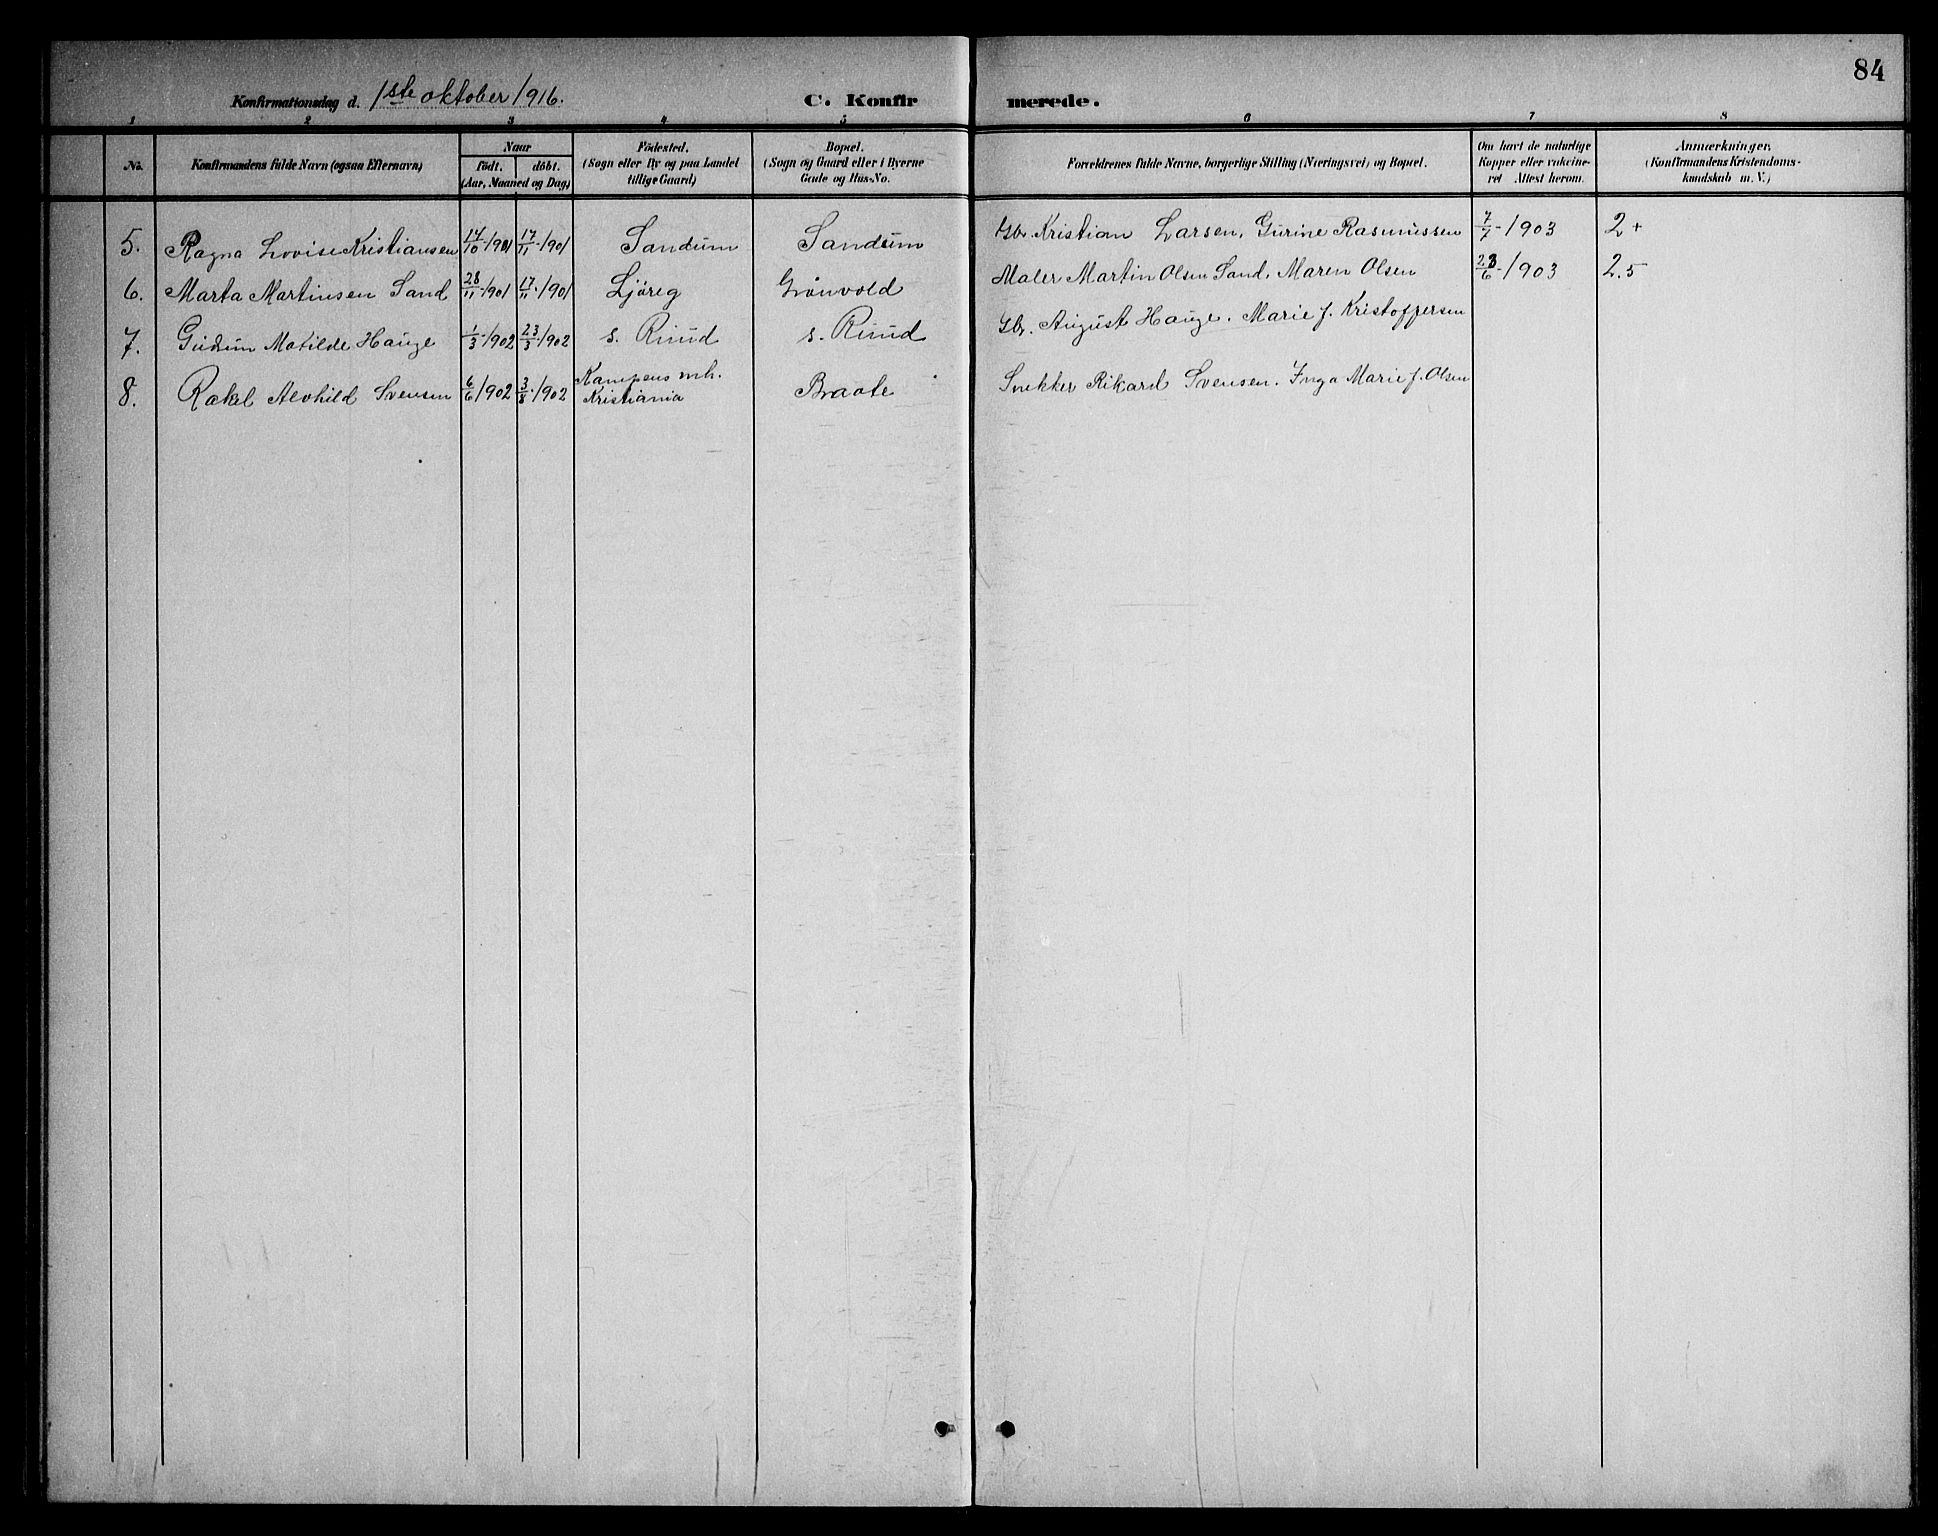 84
Konfirmationsdag d. 1ste oktober 1916. C. Konfir merede.
1 2 3 4 5 6 7 8
No. Konfirmandens fulde Navn (ogsaa Efternavn) Naar födt. döbt. (Aar, Maaned og Dag) Födested. (Sogn eller By og paa Landet tillige Gaard) Bopæl. (Sogn og Gaard eller i Byerne Gade og Hus-No. Forældrenes fulde Navne, borgerlige Stilling (Næringsvei) og Bopæl. Om havt de naturlige Kopper eller vakcine-ret Attest herom. Anmærkninger. (Konfirmandens Kristendoms-kundskab m. V.)
5. Ragna Lovise Kristiansen 14/10-1901 17/11-1901 Sandum Sandum Gbr. Kristian Larsen, Gurine Rasmussen 7/7-1903 2+
6. Marta Martinsen Sand 28/11-1901 17/11-1901 Ljøreg Grønvold Maler Martin Olsen Sand, Maren Olsen 23/6-1903 2.5
7. Gudrun Matilde Hauge 1/3-1902 23/3-1902 s. Ruud s. Ruud Gbr. August Hauge. Marie f. Kristoffersen
8. Rakel Alvhild Svensen 6/6-1902 3/8-1902 Kampens mh.
Kristiania Braate Snekker Rikard Svensen. Inga Marie f. Olsen